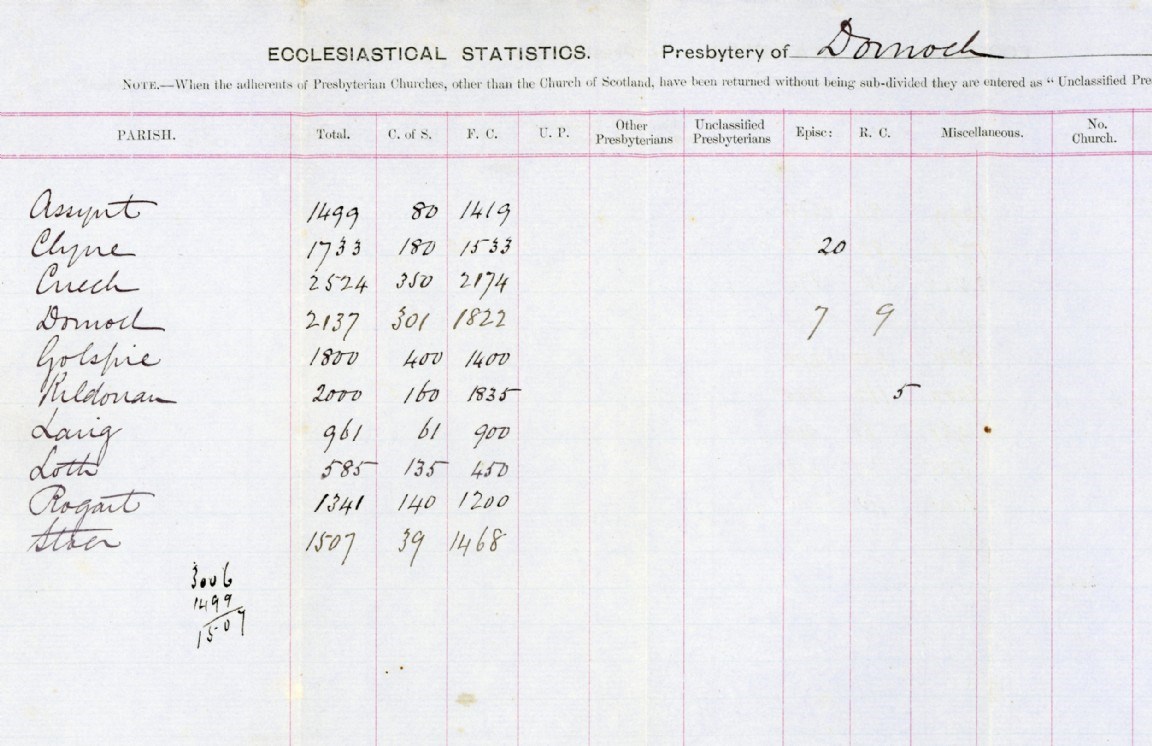 ECCLESIASTICAL STATISTICS. Presbytery of Dornoch
NOTE.—When the adherents of Presbyterian Churches, other than the Church of Scotland, have been returned without being sub-divided they are entered as "Unclassified Pre
PARISH. Total. C. of S. F. C. U. P. Other Presbyterians Unclassified Presbyterians Episc: R. C. Miscellaneous. No. Church.
Assynt 1499 80 1419
Clyne 1733 180 1533 20
Criech 2524 350 2174
Dornoch 2137 301 1822 7 9
Golspie 1800 400 1400
Kildonan 2000 160 1835 5
Lairg 961 61 900
Loth 585 135 450
Rogart 1341 140 1200
Stoer 1507 39 1468
3006
1499
1507